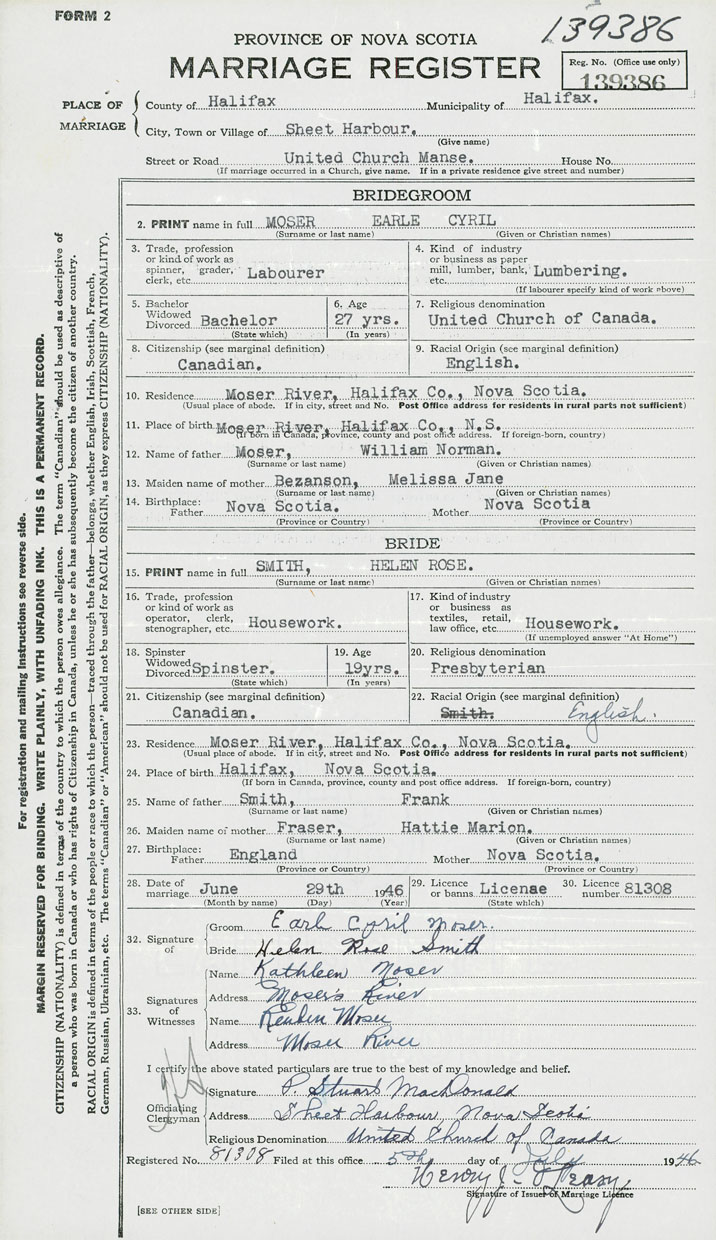 FORM 2
139386
PROVINCE OF NOVA SCOTIA
MARRIAGE REGISTER
Reg. No. (Office use only)
139386
PLACE OF MARRIAGE
County of Halifax Municipality of Halifax.
City, Town or Village of Sheet Harbour.
(Give name)
Street or Road United Church Manse. House No.
(If marriage occurred in a Church, give name. If in a private residence give street and number)
BRIDEGROOM
2. PRINT name in full MOSER EARLE CYRIL
(Surname or last name) (Given or Christian names)
3. Trade, profession or kind of work as spinner, grader, clerk, etc. Labourer
4. Kind of industry or business as paper mill, lumber, bank, etc. Lumbering.
(If labourer specify kind of work above)
5. Bachelor Widowed Divorced Bachelor
(State which)
6. Age 27 yrs.
(In years)
7. Religious denomination United Church of Canada.
8. Citizenship (see marginal definition) Canadian.
9. Racial Origin (see marginal definition) English.
10. Residence Moser River, Halifax Co., Nova Scotia.
(Usual place of abode. If in city, street and No. Post Office address for residents in rural parts not sufficient)
11. Place of birth Moser River, Halifax Co., N.S.
(If born in Canada, province, county and post office address. If foreign-born, country)
12. Name of father Moser, William Norman.
(Surname or last name) (Given or Christian names)
13. Maiden name of mother Bezanson, Melissa Jane
(Surname or last name) (Given or Christian names)
14. Birthplace: Father Nova Scotia. Mother Nova Scotia
(Province or Country) (Province or Country)
BRIDE
15. PRINT name in full SMITH, HELEN ROSE.
(Surname or last name) (Given or Christian names)
16. Trade, profession or kind of work as operator, clerk, stenographer, etc. Housework.
17. Kind of industry or business as textiles, retail, law office, etc. Housework.
(If unemployed answer "At Home")
18. Spinster Widowed Divorced Spinster.
(State which)
19. Age 19yrs.
(In years)
20. Religious denomination Presbyterian
21. Citizenship (see marginal definition) Canadian.
22. Racial Origin (see marginal definition) Smith. English.
23. Residence Moser River, Halifax Co., Nova Scotia.
(Usual place of abode. If in city, street and No. Post Office address for residents in rural parts not sufficient)
24. Place of birth Halifax, Nova Scotia.
(If born in Canada, province, county and post office address. If foreign-born, country)
25. Name of father Smith, Frank
(Surname or last name) (Given or Christian names)
26. Maiden name of mother Fraser, Hattie Marion.
(Surname or last name) (Given or Christian names)
27. Birthplace: Father England Mother Nova Scotia.
(Province or Country) (Province or Country)
28. Date of marriage June 29th 1946
(Month by name) (Day) (Year)
29. Licence or banns License
(State which)
30. Licence number 81308
32. Signature of
Groom Earl Cyril Moser.
Bride Helen Rose Smith
33. Signatures of Witnesses
Name Kathleen Moser
Address Moser's River
Name Reuben Moser
Address Moser River
I certify the above stated particulars are true to the best of my knowledge and belief.
Officiating Clergyman
Signature P. Stuart MacDonald
Address Sheet Harbour, Nova Scotia
Religious Denomination United Church of Canada
Registered No. 81308 Filed at this office 5th day of July 1946
Henry J.
Signature of Issuer of Marriage Licence
[SEE OTHER SIDE]
For registration and mailing instructions see reverse side.
MARGIN RESERVED FOR BINDING. WRITE PLAINLY, WITH UNFADING INK. THIS IS A PERMANENT RECORD.
CITIZENSHIP (NATIONALITY) is defined in terms of the country to which the person owes allegiance. The term "Canadian" should be used as descriptive of
a person who was born in Canada or who has rights of Citizenship in Canada, unless he or she has subsequently become the citizen of another country.
RACIAL ORIGIN is defined in terms of the people or race to which the person—traced through the father—belongs, whether English, Irish, Scottish, French,
German, Russian, Ukrainian, etc. The terms "Canadian" or "American" should not be used for RACIAL ORIGIN, as they express CITIZENSHIP (NATIONALITY).